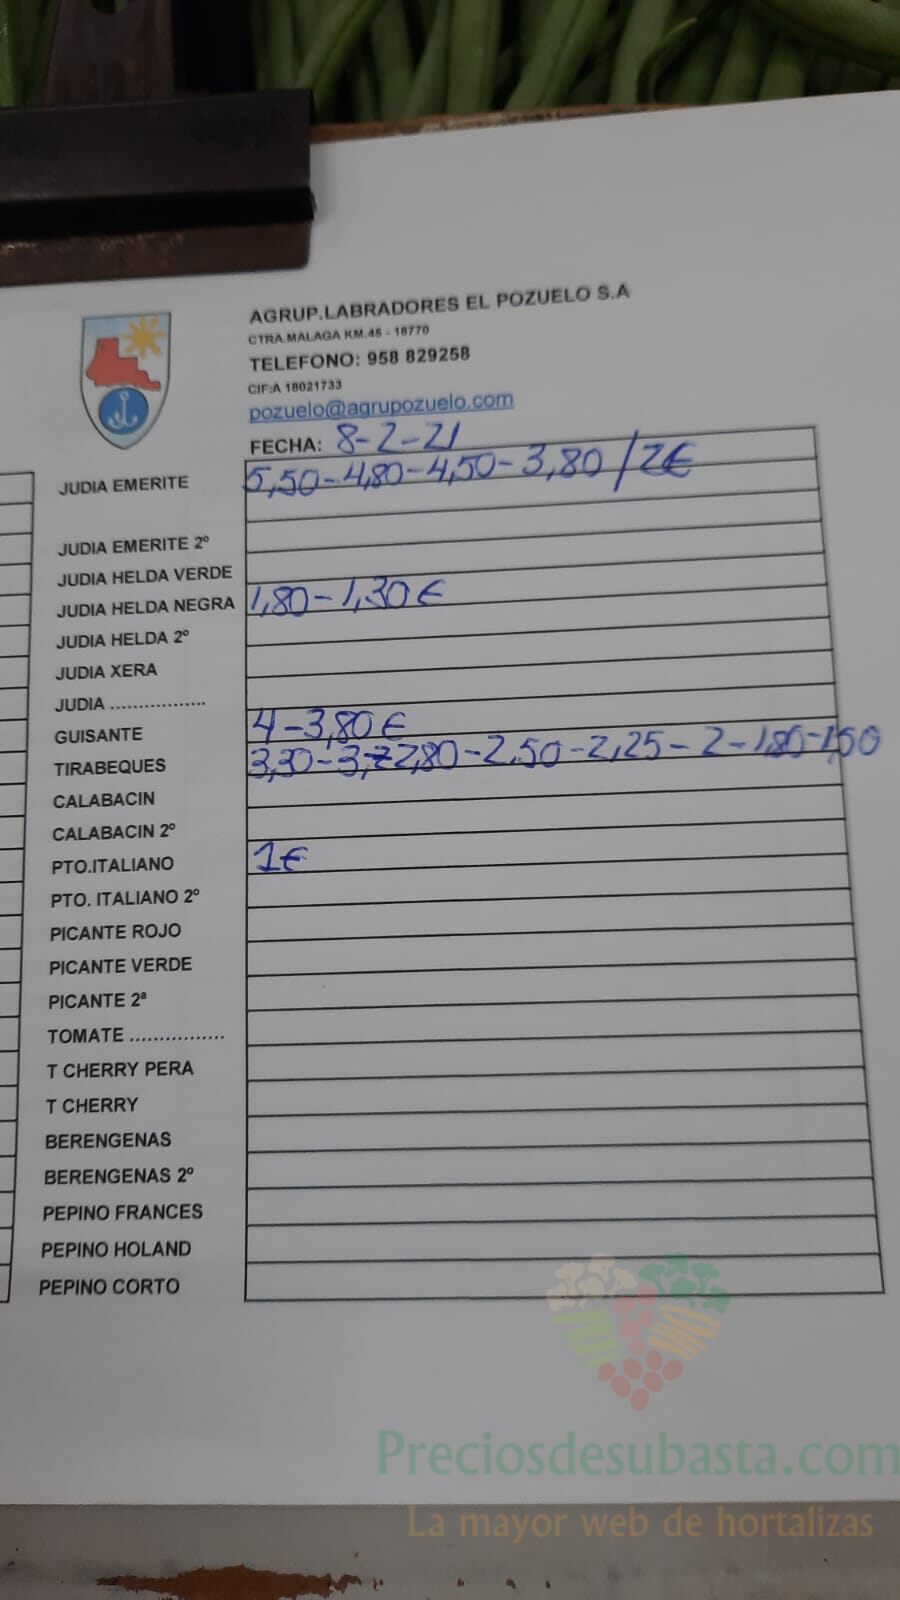 AGRUP.LABRADORES EL POZUELO S.A
CTRA.MALAGA KM.45 - 18770
TELEFONO: 958 829258
CIF:A 18021733
pozuelo@agrupozuelo.com
FECHA: 8-2-21
JUDIA EMERITE 5,50-4,80-4,50-3,80/2€
JUDIA EMERITE 2º
JUDIA HELDA VERDE
JUDIA HELDA NEGRA 1,80-1,30€
JUDIA HELDA 2º
JUDIA XERA
JUDIA .................
GUISANTE 4-3,80€
TIRABEQUES 3,30-3, 2,80-2,50-2,25-2-1,80-1,50
CALABACIN
CALABACIN 2º
PTO.ITALIANO 1€
PTO. ITALIANO 2º
PICANTE ROJO
PICANTE VERDE
PICANTE 2ª
TOMATE ................
T CHERRY PERA
T CHERRY
BERENGENAS
BERENGENAS 2º
PEPINO FRANCES
PEPINO HOLAND
PEPINO CORTO
Preciosdesubasta.com
La mayor web de hortalizas